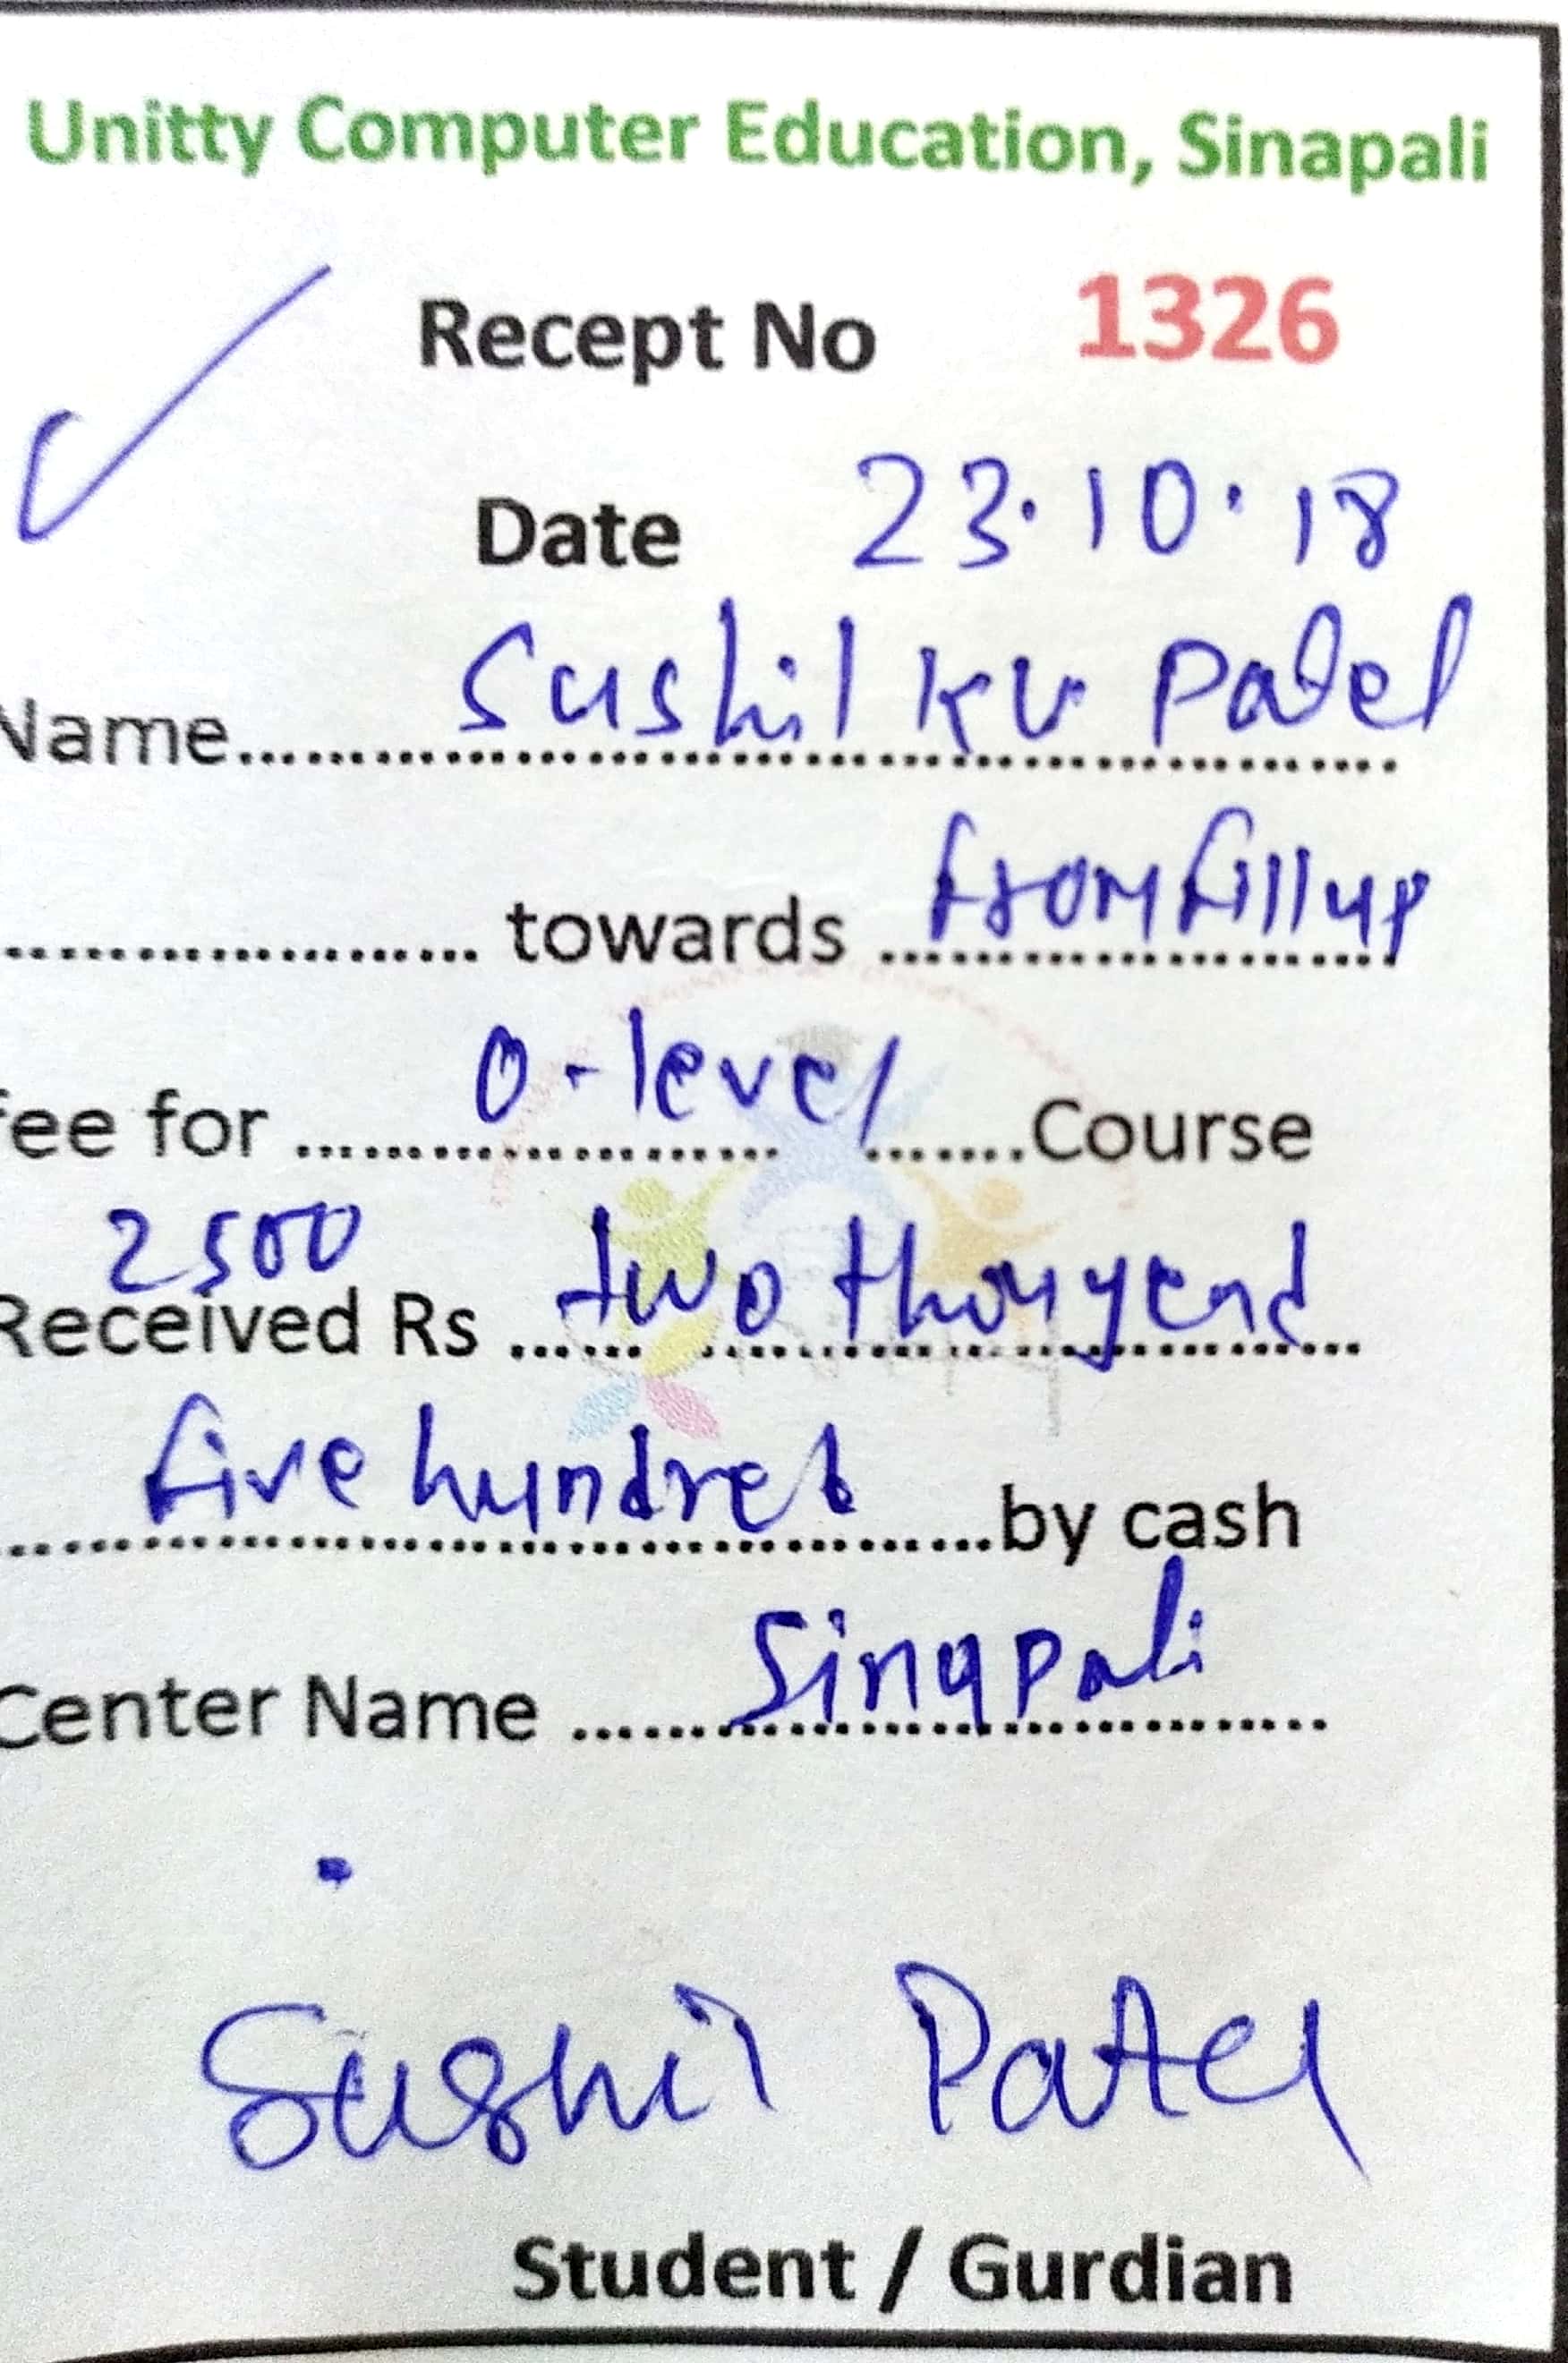 Unitty Computer Education, Sinapali
Recept No 1326
Date 23.10.18
Name.......... Sushil Kr Patel
.......... towards fromfillup
fee for .......... O-level .......Course
2500
Received Rs .......... two thousend
five hundred ..........by cash
Center Name .......... Sinapali
Sushil Patel
Student / Gurdian